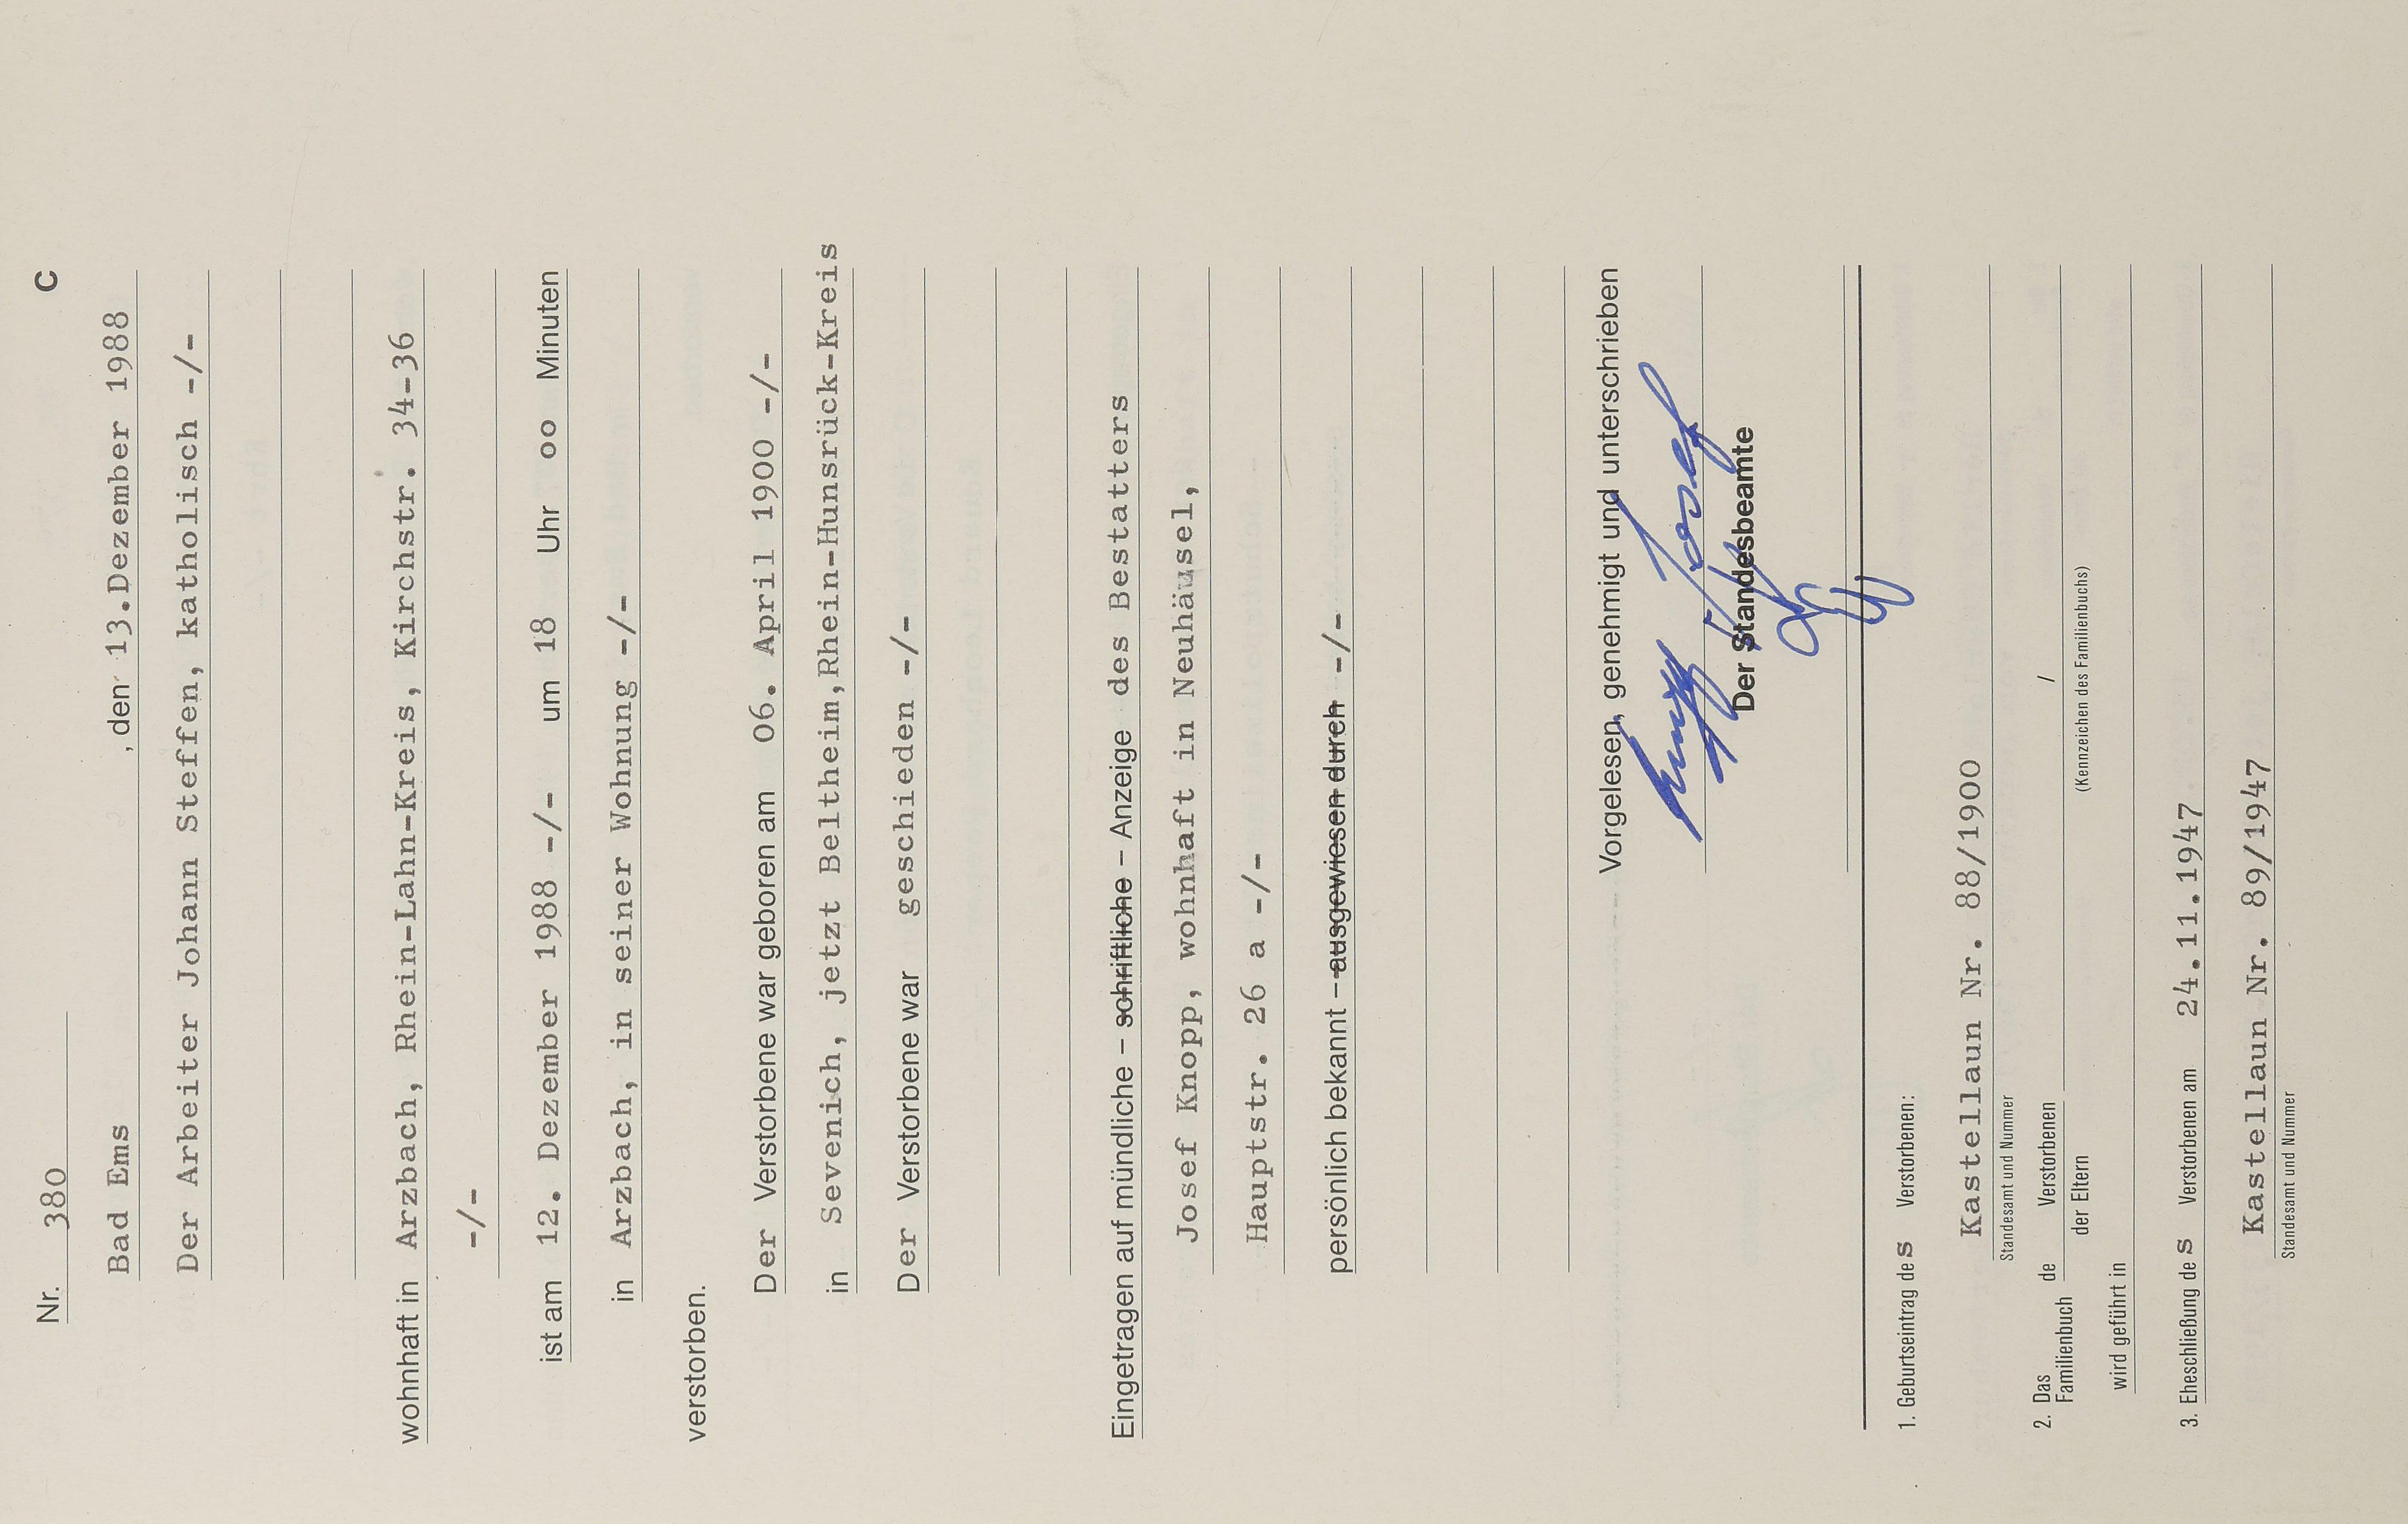 Nr. 380 C
Bad Ems , den 13.Dezember 1988
Der Arbeiter Johann Steffen, katholisch -/-
wohnhaft in Arzbach, Rhein-Lahn-Kreis, Kirchstr. 34-36
-/-
ist am 12. Dezember 1988 -/- um 18 Uhr oo Minuten
in Arzbach, in seiner Wohnung -/-
verstorben.
Der Verstorbene war geboren am 06. April 1900 -/-
in Sevenich, jetzt Beltheim,Rhein-Hunsrück-Kreis
Der Verstorbene war geschieden -/-
Eingetragen auf mündliche – schriftliche – Anzeige des Bestatters
Josef Knopp, wohnhaft in Neuhäusel,
Hauptstr. 26 a -/-
persönlich bekannt – ausgewiesen durch -/-
Vorgelesen, genehmigt und unterschrieben
Knopp Josef
Der Standesbeamte
1. Geburtseintrag des Verstorbenen:
Kastellaun Nr. 88/1900
Standesamt und Nummer
2. Das Familienbuch de Verstorbenen /
der Eltern (Kennzeichen des Familienbuchs)
wird geführt in
3. Eheschließung des Verstorbenen am 24.11.1947
Kastellaun Nr. 89/1947
Standesamt und Nummer